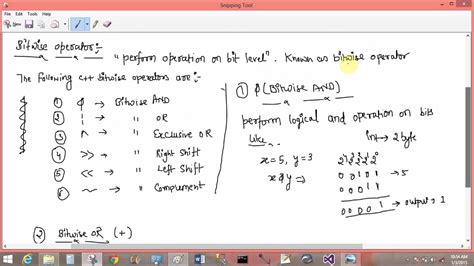 Snipping Tool
Bitwise operator:-
"perform operation on bit level". Known as bitwise operator
The following c++ bitwise operators are:-
① & → Bitwise AND
② | → " OR
③ ^ → " Exclusive OR
④ >> → " Right Shift
⑤ << → " Left Shift
⑥ ~ → " Complement
① & (Bitwise AND)
perform logical and operation on bits
Like
int → 2 byte
x=5, y=3
x&y ⇒
0 0 1 0 1 → 5
0 0 0 1 1
0 0 0 0 1 → output = 1
② Bitwise OR (+)
10:54 AM
1/3/2015